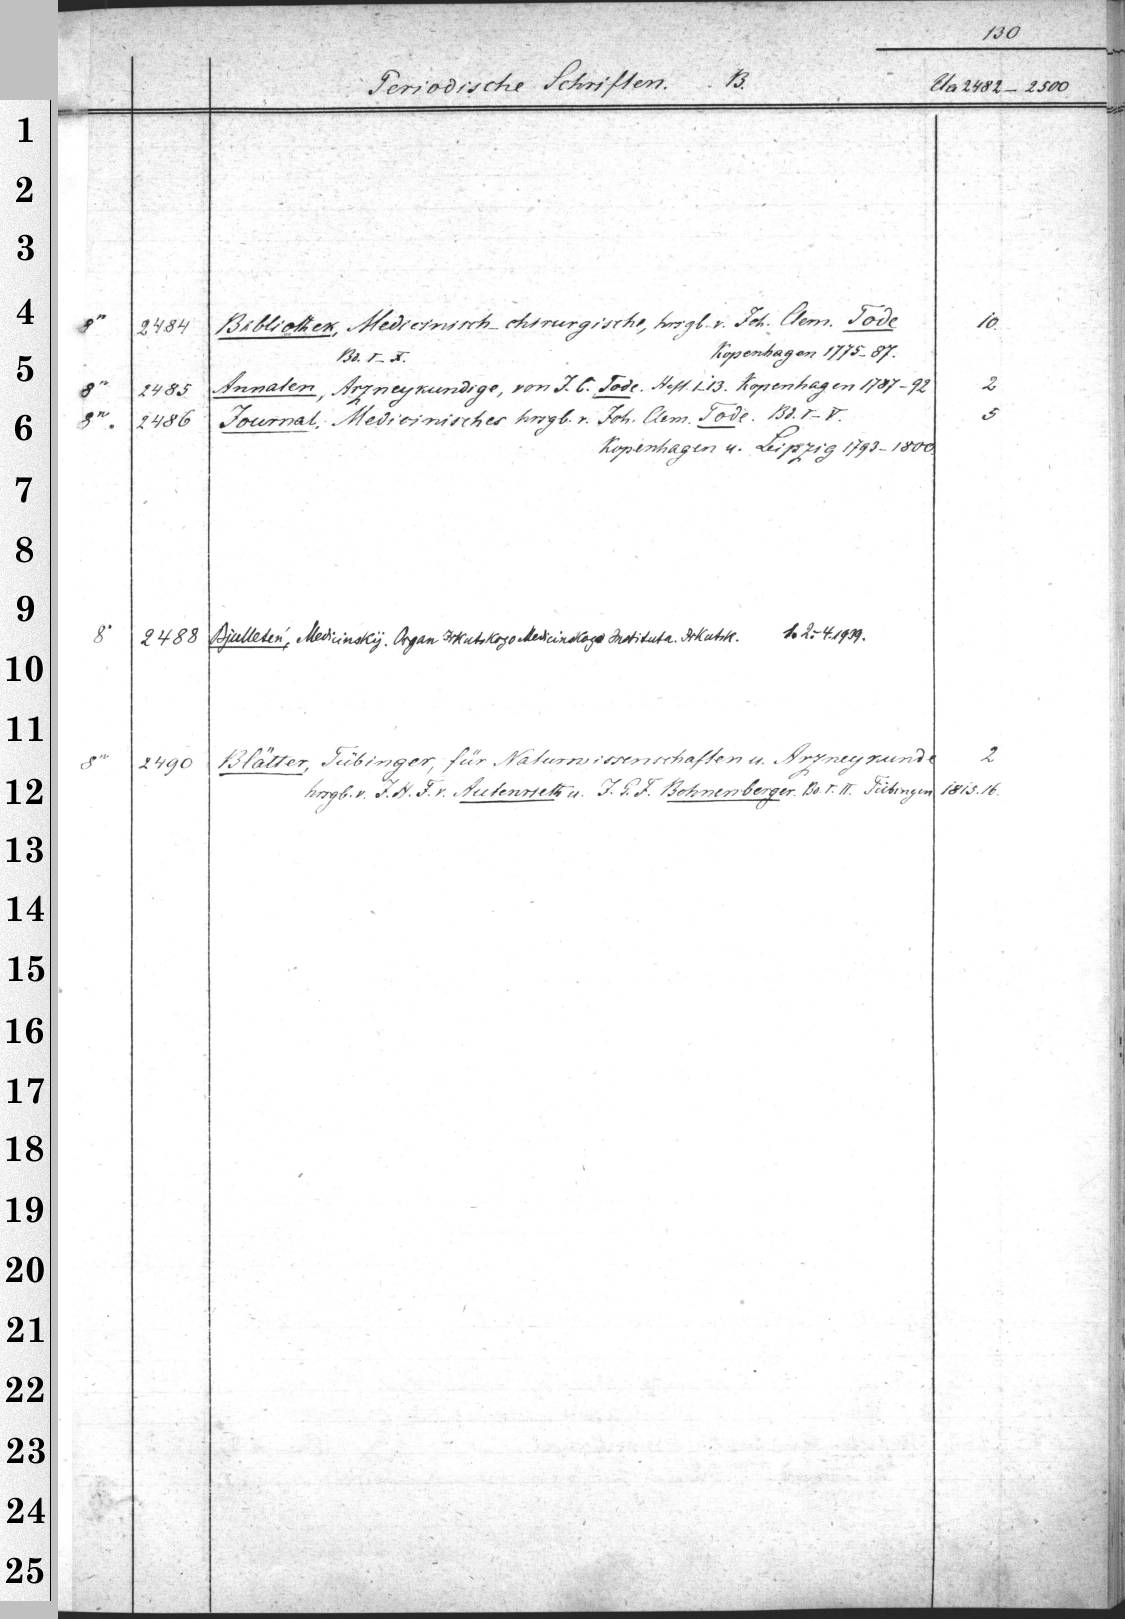 130
Periodische Schriften. B. Ua 2482 – 2500
1
2
3
4
8° 2484 Bibliothek, Medicinisch-chirurgische, hrsgb. v. Joh. Clem. Tode 10.
Bd. I – X. Kopenhagen 1775–87.
5
8° 2485 Annalen, Arzneykundige, von J. C. Tode. Heft 1–13. Kopenhagen 1787–92 2
6
8°. 2486 Journal, Medicinisches hrsgb. v. Joh. Clem. Tode. Bd. I – V. 5
Kopenhagen u. Leipzig 1793–1800.
7
8
9
8° 2488 Bjulleteń, Medicinskij. Organ Irkutskogo Medicinskogo Instituta. Irkutsk. 2.–4. 1939.
10
11
8° 2490 Blätter, Tübinger, für Naturwissenschaften u. Arzneykunde 2
12
hrsgb. v. J. H. F. v. Autenrieth u. J. G. F. Bohnenberger. Bd. I. II. Tübingen 1815.16.
13
14
15
16
17
18
19
20
21
22
23
24
25